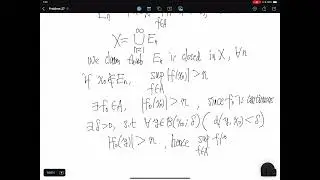 Problem 27
E_n f∈A
X = ∞∪n=1 E_n
we claim that E_n is closed in X, ∀n
if x_0 ∉ E_n, sup f∈A |f(x_0)| > n
∃ f_0 ∈ A, |f_0(x_0)| > n, since f_0 is continuous
∃ δ>0, s.t ∀ y ∈ B(x_0; δ) ( d(y, x_0) < δ )
|f_0(y)| > n, hence sup f∈A